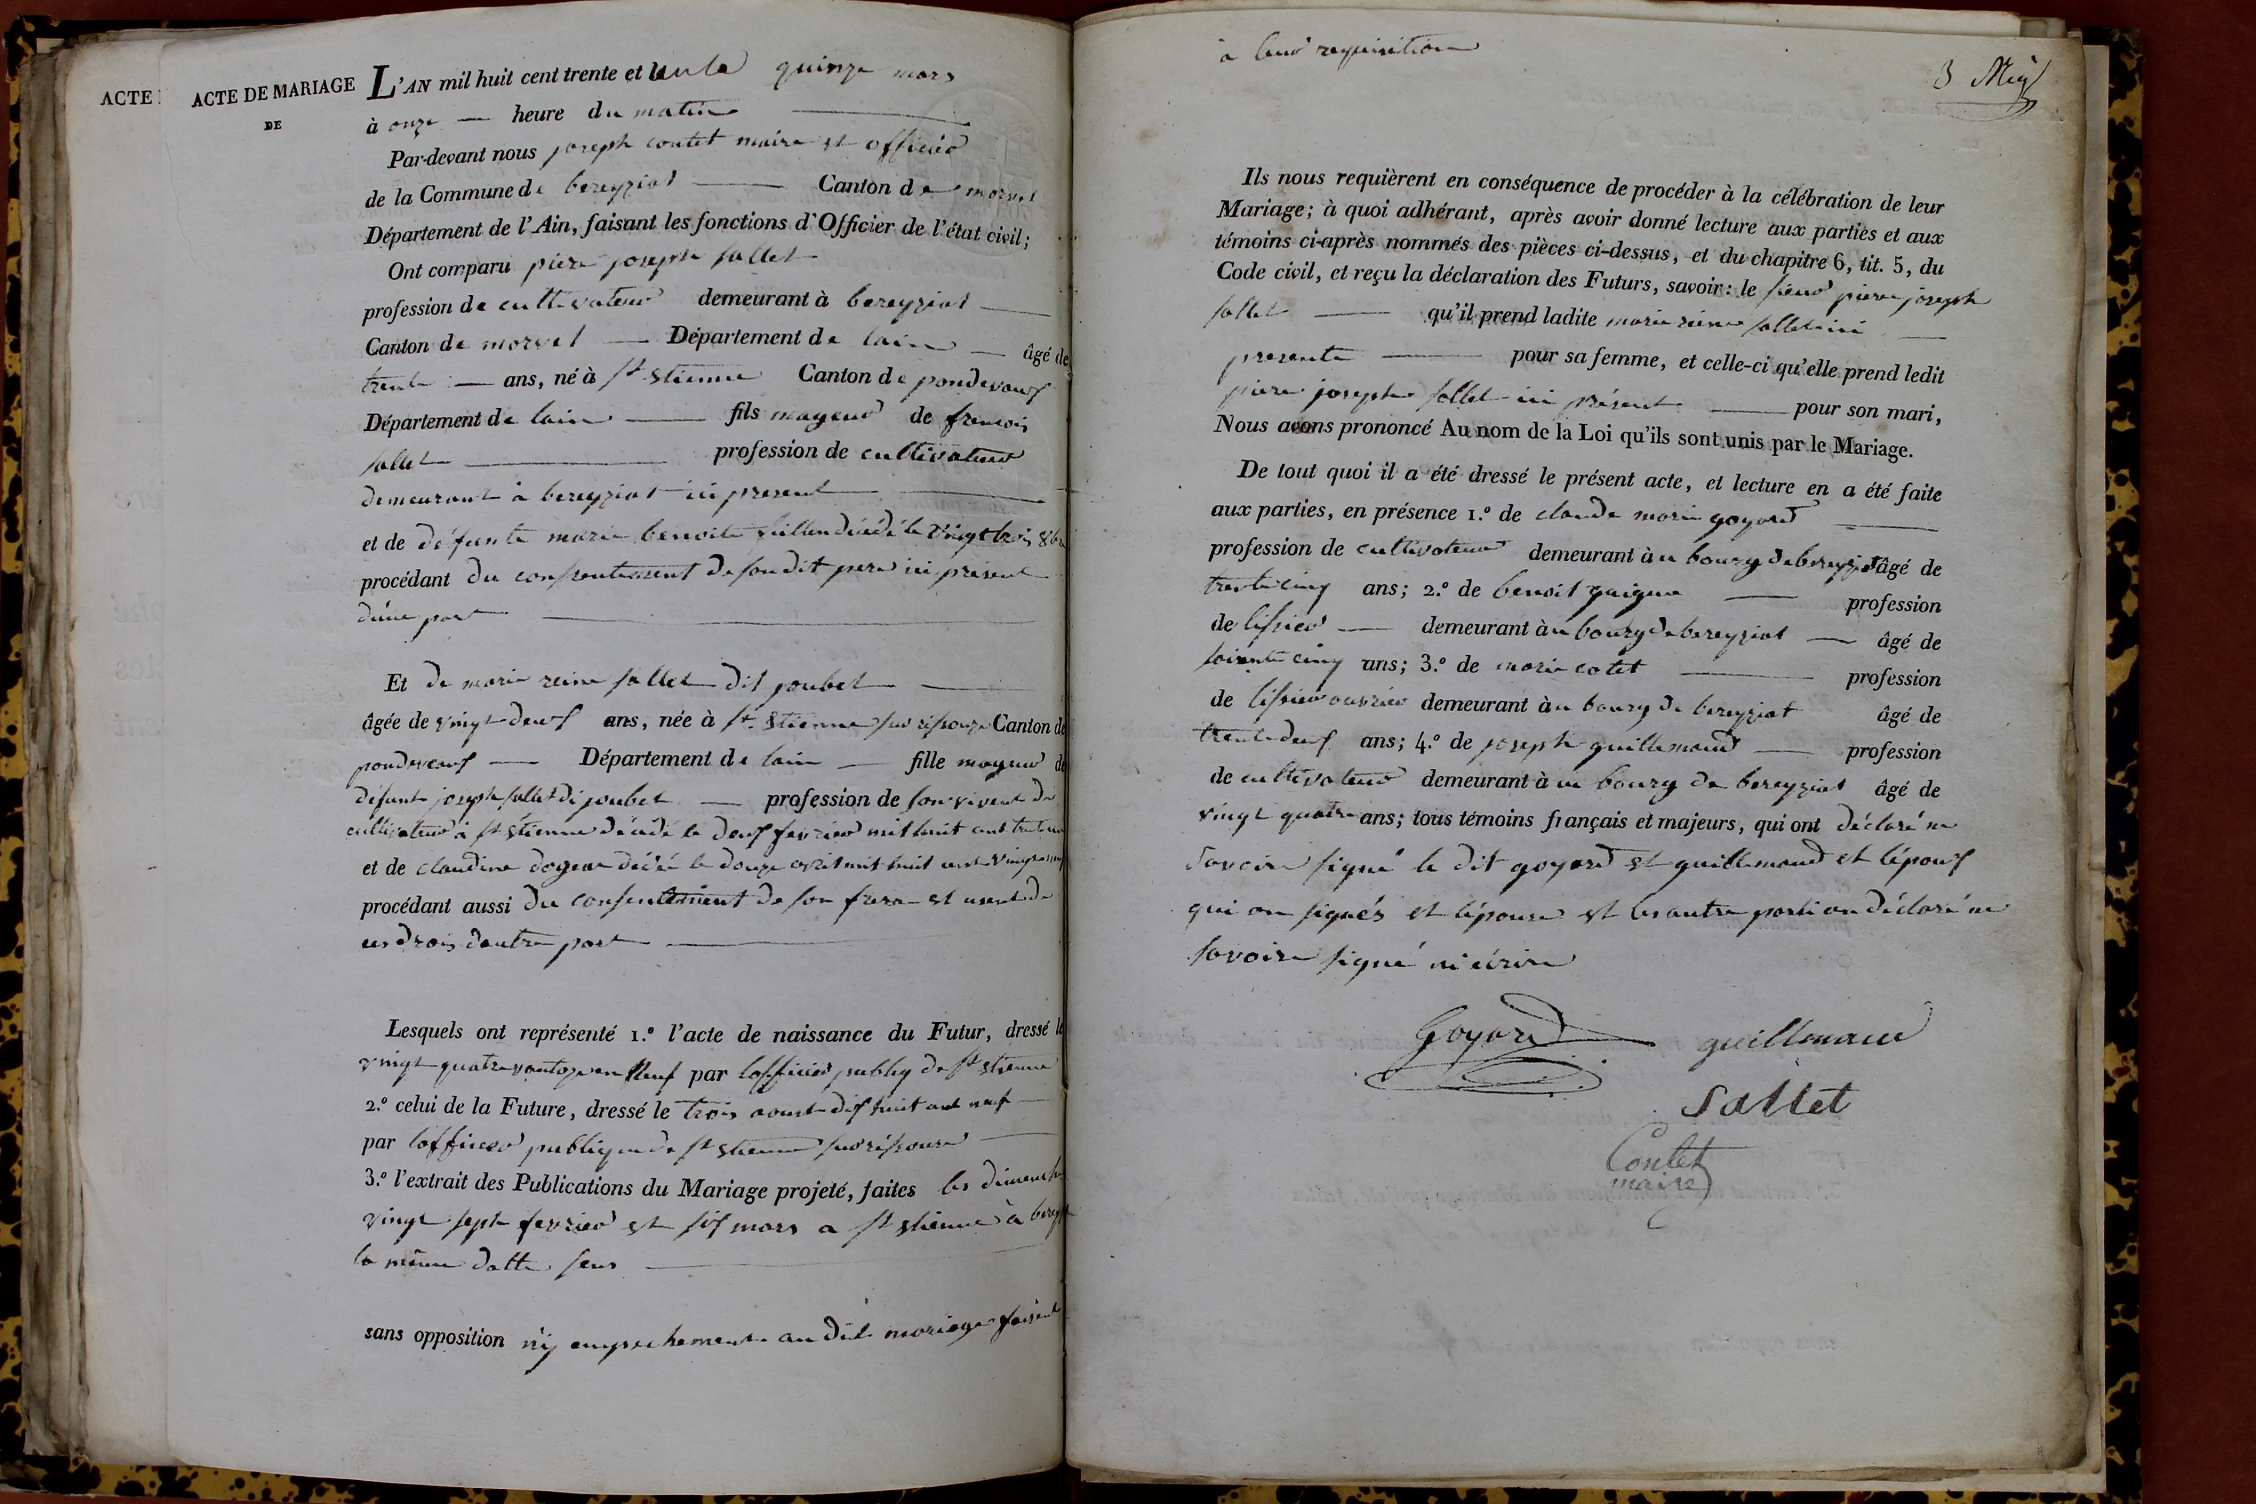 ACTE
ACTE DE MARIAGE
DE
L'AN mil huit cent trente et un le quinze mars
à onze — heure du matin
Par-devant nous joseph contet maire et officier
de la Commune de bereyziat — Canton de morvel
Département de l'Ain, faisant les fonctions d'Officier de l'état civil;
Ont comparu piere joseph sallet
profession de cultivateur demeurant à bereyziat —
Canton de morvel — Département de lain — âgé de
trente — ans, né à st stienne Canton de pondevoux
Département de lain — fils mageur de francois
sallet — profession de cultivateur
demeurant à bereyziat ici present
et de défunte marie benoite décédé le vingt trois
procédant du consentement de son dit pere ici présent
dune part —
Et de marie reine sallet dit joubet —
âgée de vingt deux ans, née à st. stienne sur risouze Canton de
pondevoux — Département de lain — fille mageur de
défunt joseph sallet di joubet — profession de son vivent de
cultivateur à st stienne décédé le deux fevrier mil huit cent trente
et de claudine décédé le douze avril mil huit cent vingt
procédant aussi du consentement de son frere et usent de
ces drois dautre part —
Lesquels ont représenté 1.º l'acte de naissance du Futur, dressé le
vingt quatre vantoze an neuf par lofficier publiq de st stienne
2.º celui de la Future, dressé le trois aoust dix huit cent neuf
par lofficier publique de st stienne sur risouse —
3.º l'extrait des Publications du Mariage projeté, faites les dimenche
vingt sept fevrier et six mars a st stienne à bereyziat
la même datte sens —
sans opposition ny empechement au dit mariage faisent
à leur requisition
3 Mig
Ils nous requièrent en conséquence de procéder à la célébration de leur
Mariage; à quoi adhérant, après avoir donné lecture aux parties et aux
témoins ci-après nommés des pièces ci-dessus, et du chapitre 6, tit. 5, du
Code civil, et reçu la déclaration des Futurs, savoir: le sieur piere joseph
sallet — qu'il prend ladite marie reine sallet ici —
presente — pour sa femme, et celle-ci qu'elle prend ledit
piere joseph sallet ici présent — pour son mari,
Nous avons prononcé Au nom de la Loi qu'ils sont unis par le Mariage.
De tout quoi il a été dressé le présent acte, et lecture en a été faite
aux parties, en présence 1.º de claude marie goyard —
profession de cultivateur demeurant à u bourg de bereyziat âgé de
trente cinq ans; 2.º de benoit guigue — profession
de tissier — demeurant à u bourg de bereyziat — âgé de
soixente cinq ans; 3.º de marie cotet — profession
de tissier ouvrier demeurant à u bourg de bereyziat âgé de
trente deux ans; 4.º de joseph guillemaud — profession
de cultivateur demeurant à u bourg de bereyziat âgé de
vingt quatre ans; tous témoins français et majeurs, qui ont déclaré ne
savoire signé le dit goyard et guillemaud et lépoux
qui on signés et lépouse et les autre parti on déclaré ne
savoire signé ni écrire
Goyard guillemaud
Sallet
Contet
maire